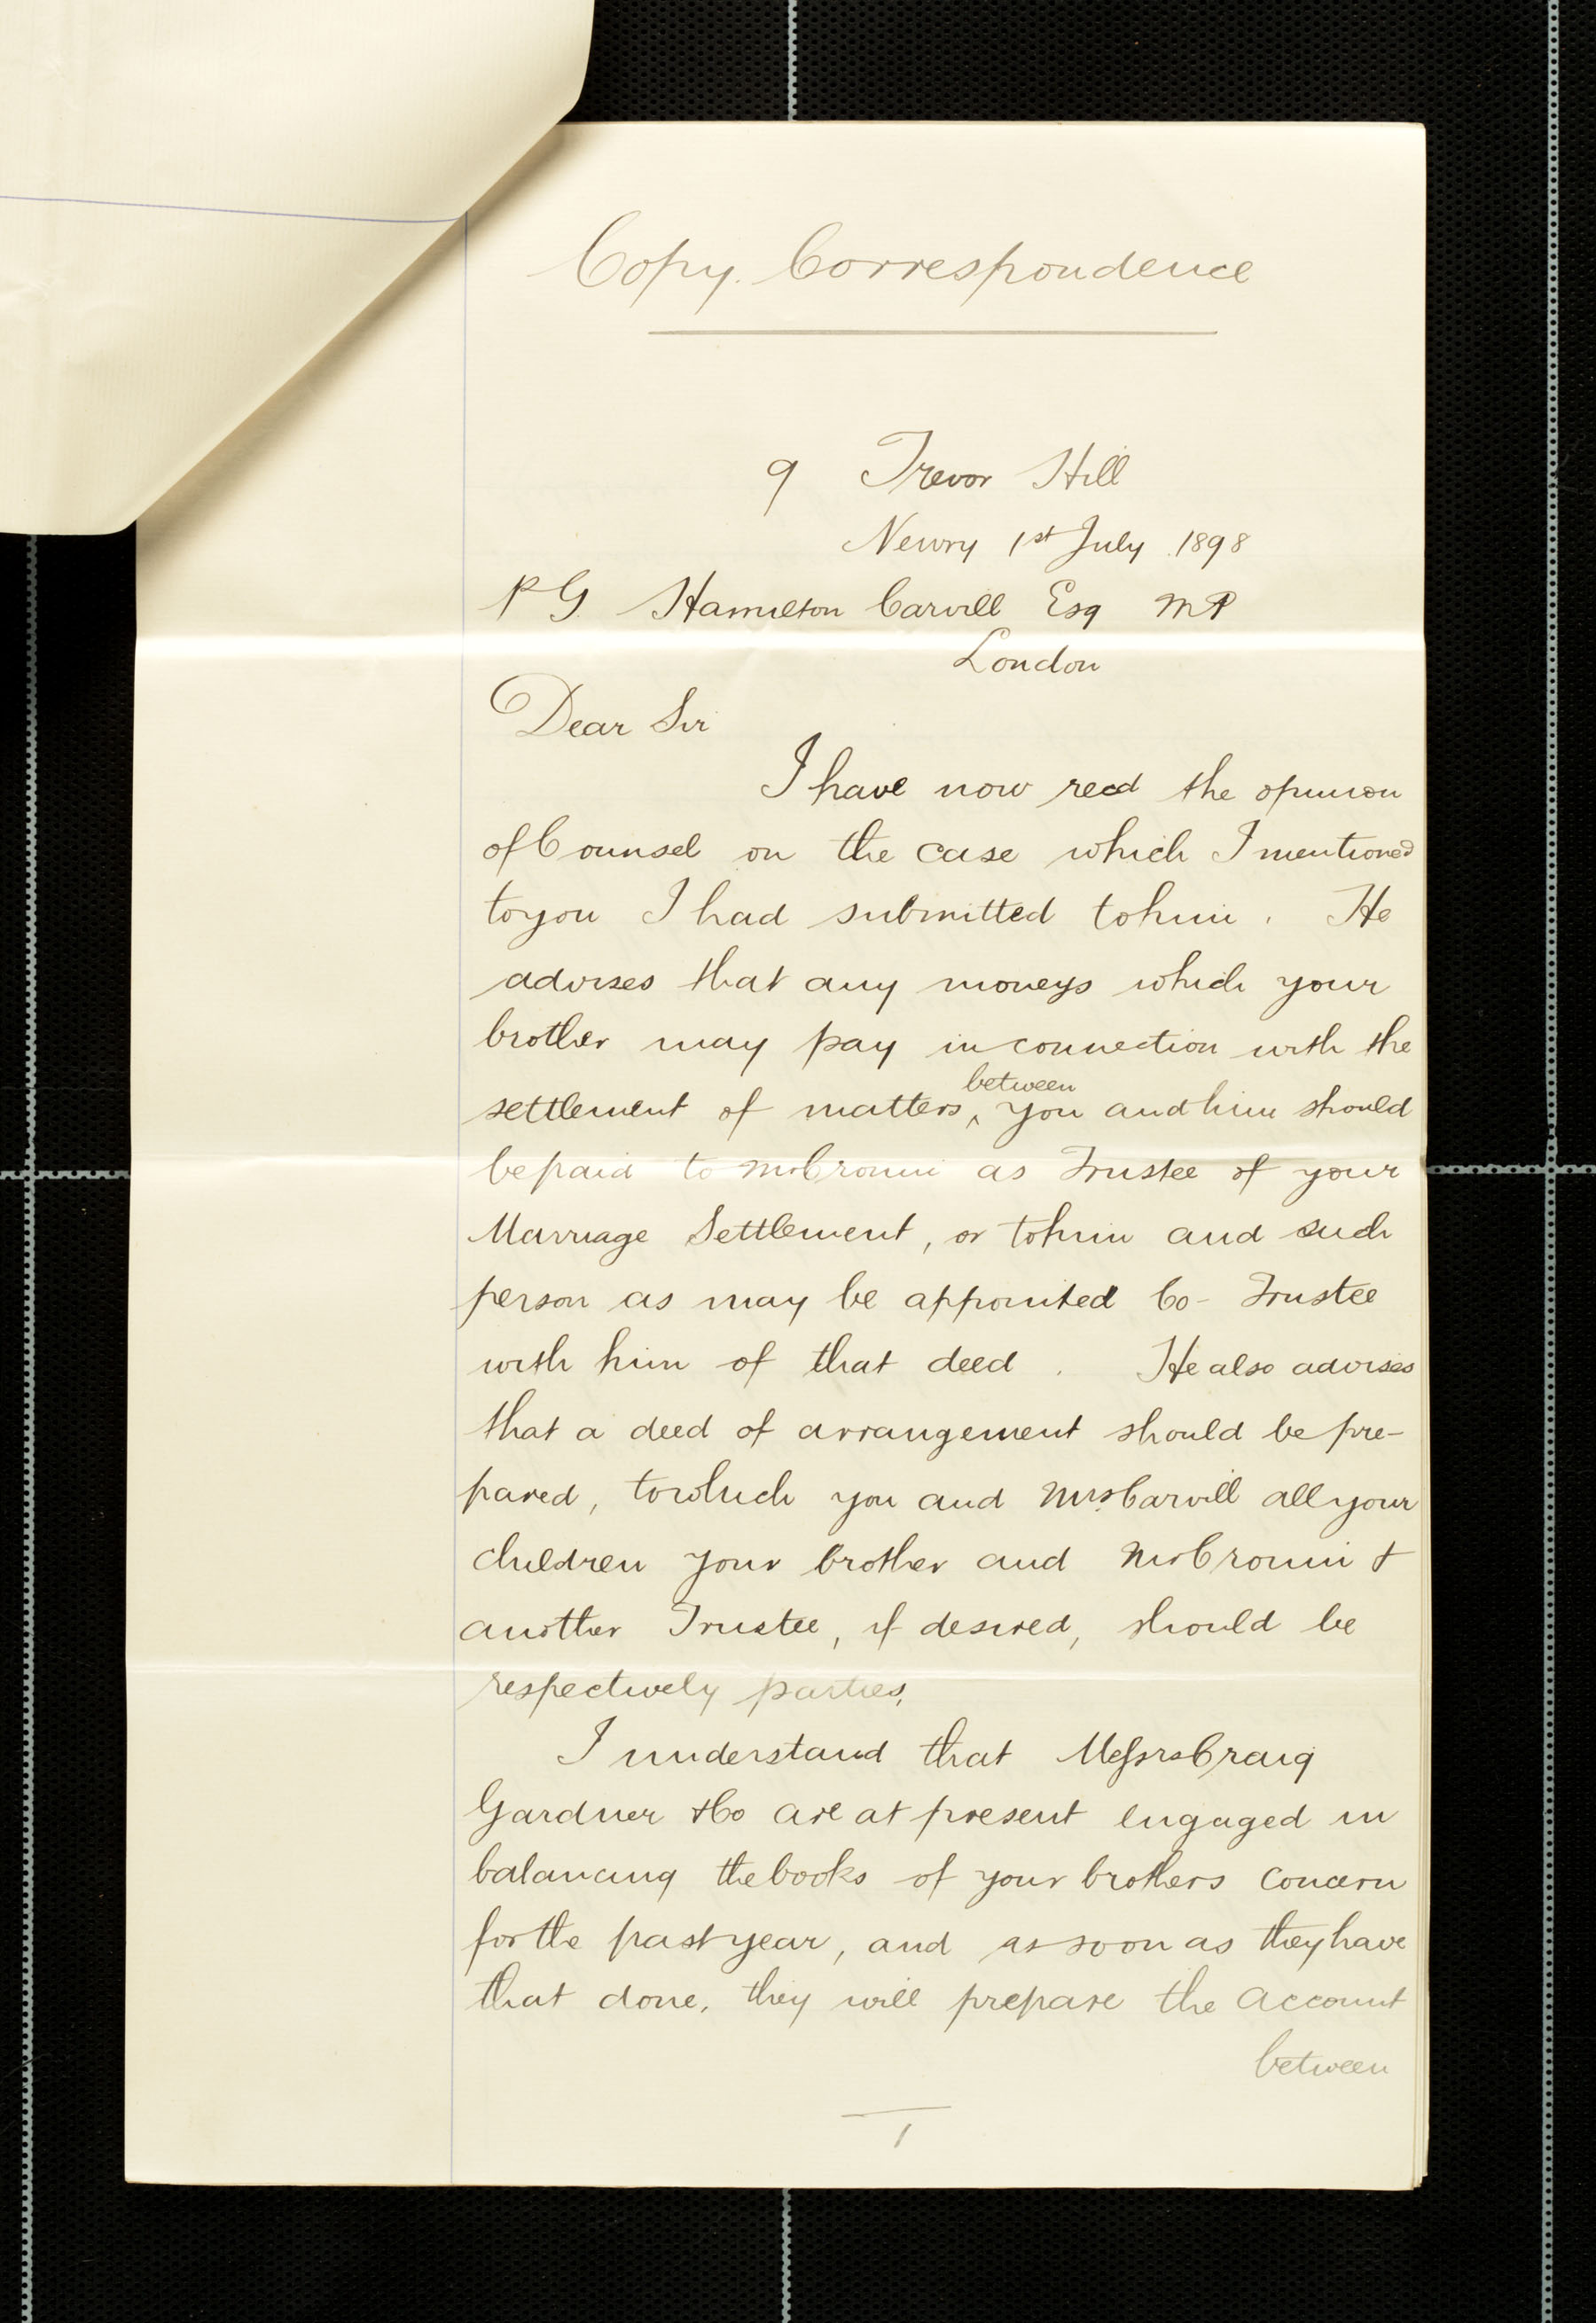 Copy. Correspondence
9 Trevor Hill
Newry 1st July 1898
P G. Hamilton Carvill Esq MP
London
Dear Sir
I have now recd the opinion
of Counsel on the case which I mentioned
to you I had submitted to him. He
advises that any moneys which your
brother may pay in connection with the
settlement of matters, between you and him should
be paid to Mr Cronin as Trustee of your
Marriage Settlement, or to him and such
person as may be appointed Co-Trustee
with him of that deed. He also advises
that a deed of arrangement should be pre-
pared, to which you and Mrs Carvill all your
children your brother and Mr Cronin &
another Trustee, if desired, should be
respectively parties.
I understand that Messrs Craig
Gardner & Co are at present engaged in
balancing the books of your brothers concern
for the past year, and as soon as they have
that done, they will prepare the account
between
1